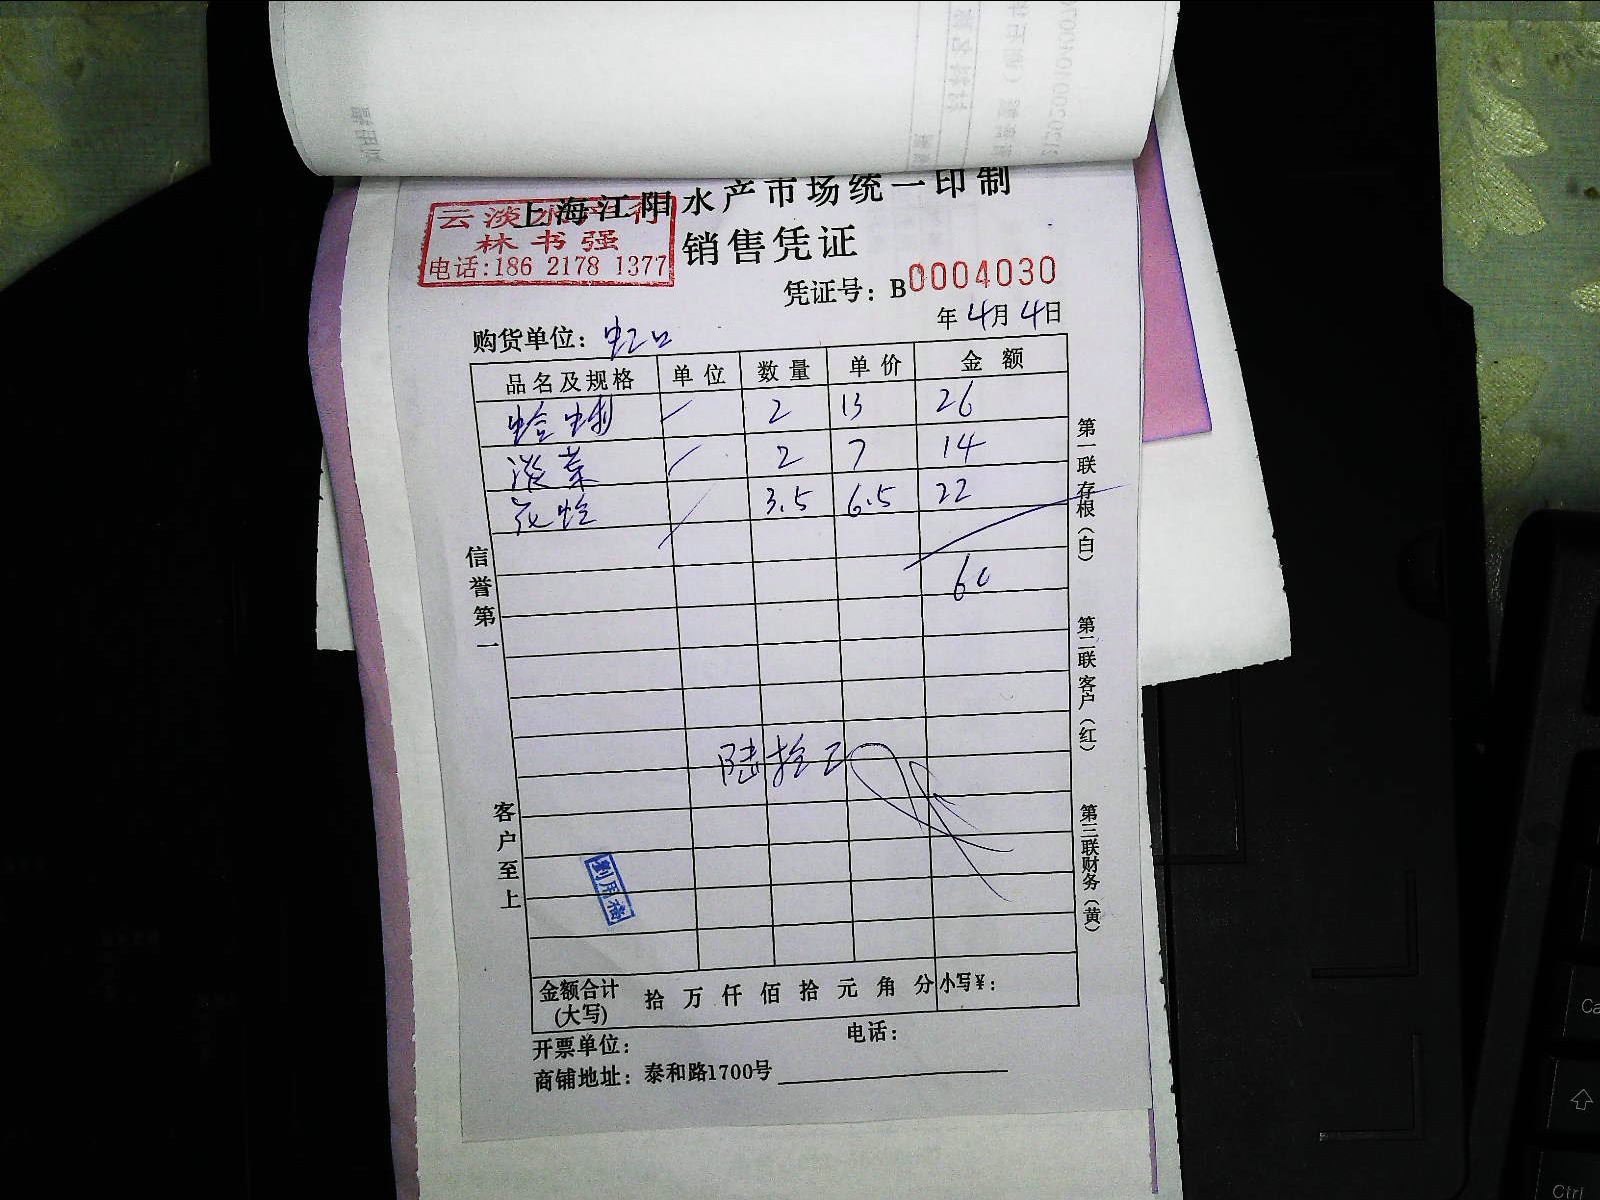 上海江阳水产市场统一印制
云淡水产行
林书强
电话:186 2178 1377
销售凭证
凭证号: B0004030
年4月4日
购货单位: 虹口
品名及规格 单位 数量 单价 金额
蛤蜊 / 2 13 26
淡菜 / 2 7 14
花蛤 / 3.5 6.5 22
60
陆拾正
信誉第一
客户至上
第一联 存根(白)
第二联 客户(红)
第三联 财务(黄)
金额合计(大写) 拾 万 仟 佰 拾 元 角 分 小写¥:
开票单位: 电话:
商铺地址: 泰和路1700号
Ctrl